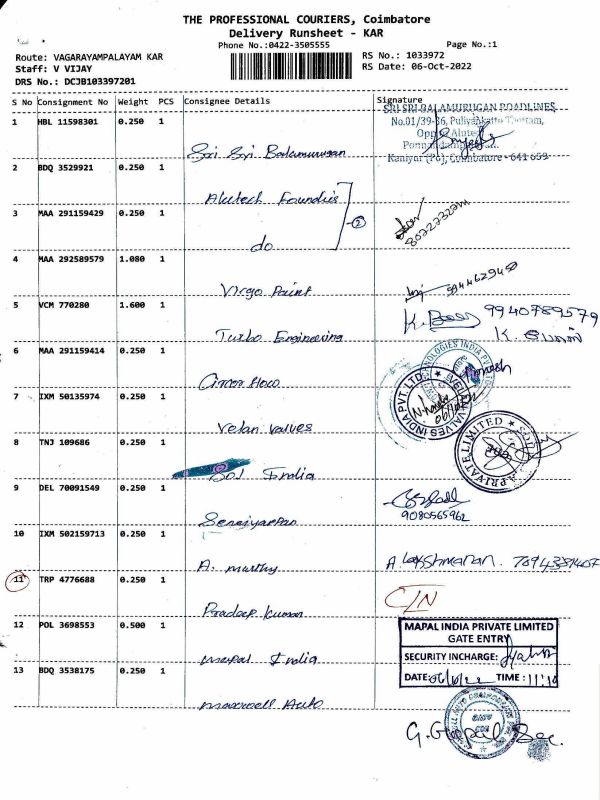 THE PROFESSIONAL COURIERS, Coimbatore
Delivery Runsheet - KAR
Phone No.:0422-3505555
Page No.:1
Route: VAGARAYAMPALAYAM KAR
RS No.: 1033972
Staff: V VIJAY
RS Date: 06-Oct-2022
DRS No.: DCJB103397201
S No Consignment No Weight PCS Consignee Details Signature
SRI SRI BALAMURUGAN ROADLINES
1 HBL 11598301 0.250 1
No.01/39-36, Puliyankattu Thottam,
Kaniyur (Po), Coimbatore - 641 659
Sri Sri Balamurugan
2 BDQ 3529921 0.250 1
Alutech Foundies
②
3 MAA 291159429 0.250 1
do
4 MAA 292589579 1.080 1
9944629450
Virgo Paint
5 VCM 770280 1.600 1
9940789579
Turbo Engineering
6 MAA 291159414 0.250 1
Circor Flow
7 IXM 50135974 0.250 1
VALVES INDIA PVT. LTD.
Velan valves
8 TNJ 109686 0.250 1
PRIVATE LIMITED
Sol India
9 DEL 70091549 0.250 1
9080565962
Senniyappan
10 IXM 502159713 0.250 1
A. Murthy
A. Lakshmanan. 7094381407
11 TRP 4776688 0.250 1
C/N
Pradeep kumar
12 POL 3698553 0.500 1
MAPAL INDIA PRIVATE LIMITED
GATE ENTRY
SECURITY INCHARGE:
mapal India
13 BDQ 3538175 0.250 1
DATE: TIME : 11:10
maxwell Auto
G. Gopal Sec.